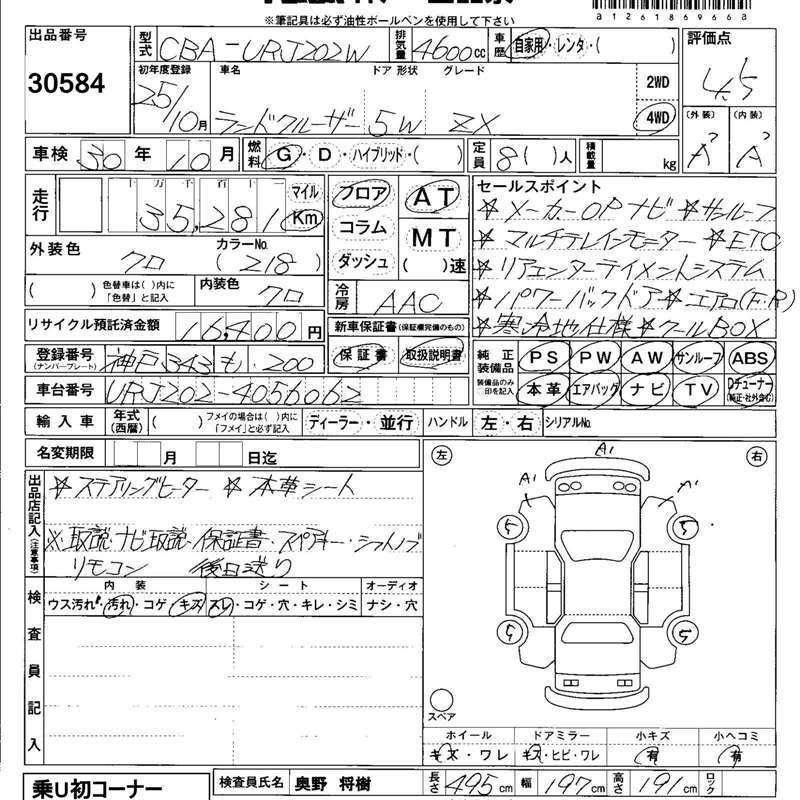 ※筆記具は必ず油性ボールペンを使用して下さい
a1261869666a
出品番号 30584
型式 CBA-URJ202W 排気量 4600cc 車歴 自家用・レンタ・( )
評価点 4.5
初年度登録 25/10月 車名 ランドクルーザー ドア 形状 5W グレード ZX 2WD 4WD
(外装) A (内装) A
車検 30年 10月 燃料 G・D・ハイブリッド・( ) 定員 8( )人 積載量 kg
走行 十万千百十 35,281 マイル Km
フロア コラム ダッシュ
AT MT ( )速
セールスポイント
☆メーカーOPナビ ☆サンルーフ
☆マルチテレインモニター ☆ETC
☆リアエンターテイメントシステム
☆パワーバックドア ☆エアロ(F・R)
☆寒冷地仕様 ☆クールBOX
外装色 クロ カラーNo. (218)
( ) 色替車は( )内に「色替」と記入 内装色 クロ
冷房 AAC
リサイクル預託済金額 16,400円
新車保証書(保証欄完備のもの)
保証書 取扱説明書
登録番号(ナンバープレート) 神戸 343 も 200
純正装備品 PS PW AW サンルーフ ABS
装備品のみ印を記入 本革 エアバッグ ナビ TV Dチューナー(純正・社外含む)
車台番号 URJ202-4056062
輸入車 年式(西暦) ( ) フメイの場合は( )内に「フメイ」と必ず記入 ディーラー・並行 ハンドル 左・右 シリアルNo.
名変期限 月 日迄
左 右
出品店記入(注意事項)
☆ステアリングヒーター ☆本革シート
※取説・ナビ取説・保証書・スペアキー・シャフトノブ
リモコン 後日送り
A1
A1
A1
5 5
5 5
スペア
検査員記入
内装 シート オーディオ
ウス汚れ・汚れ・コゲ・キズ スレ・コゲ・穴・キレ・シミ ナシ・穴
ホイール ドアミラー 小キズ 小ヘコミ
キズ・ワレ キズ・ヒビ・ワレ 有 有
乗U初コーナー
検査員氏名 奥野 将樹 長さ 495cm 幅 197cm 高さ 191cm ロック